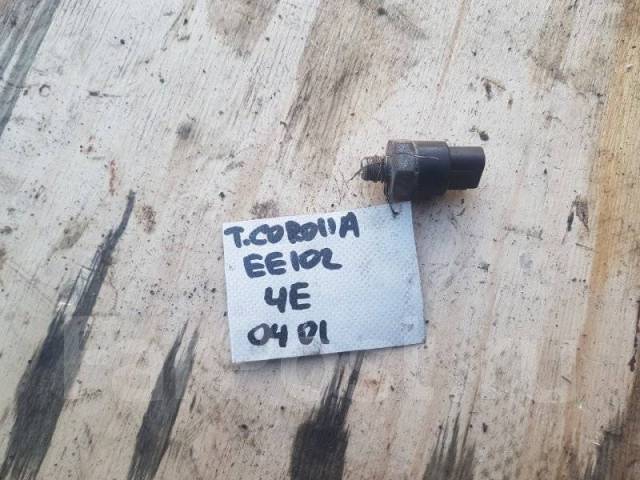 T.COROllA
EE102
4E
04 01